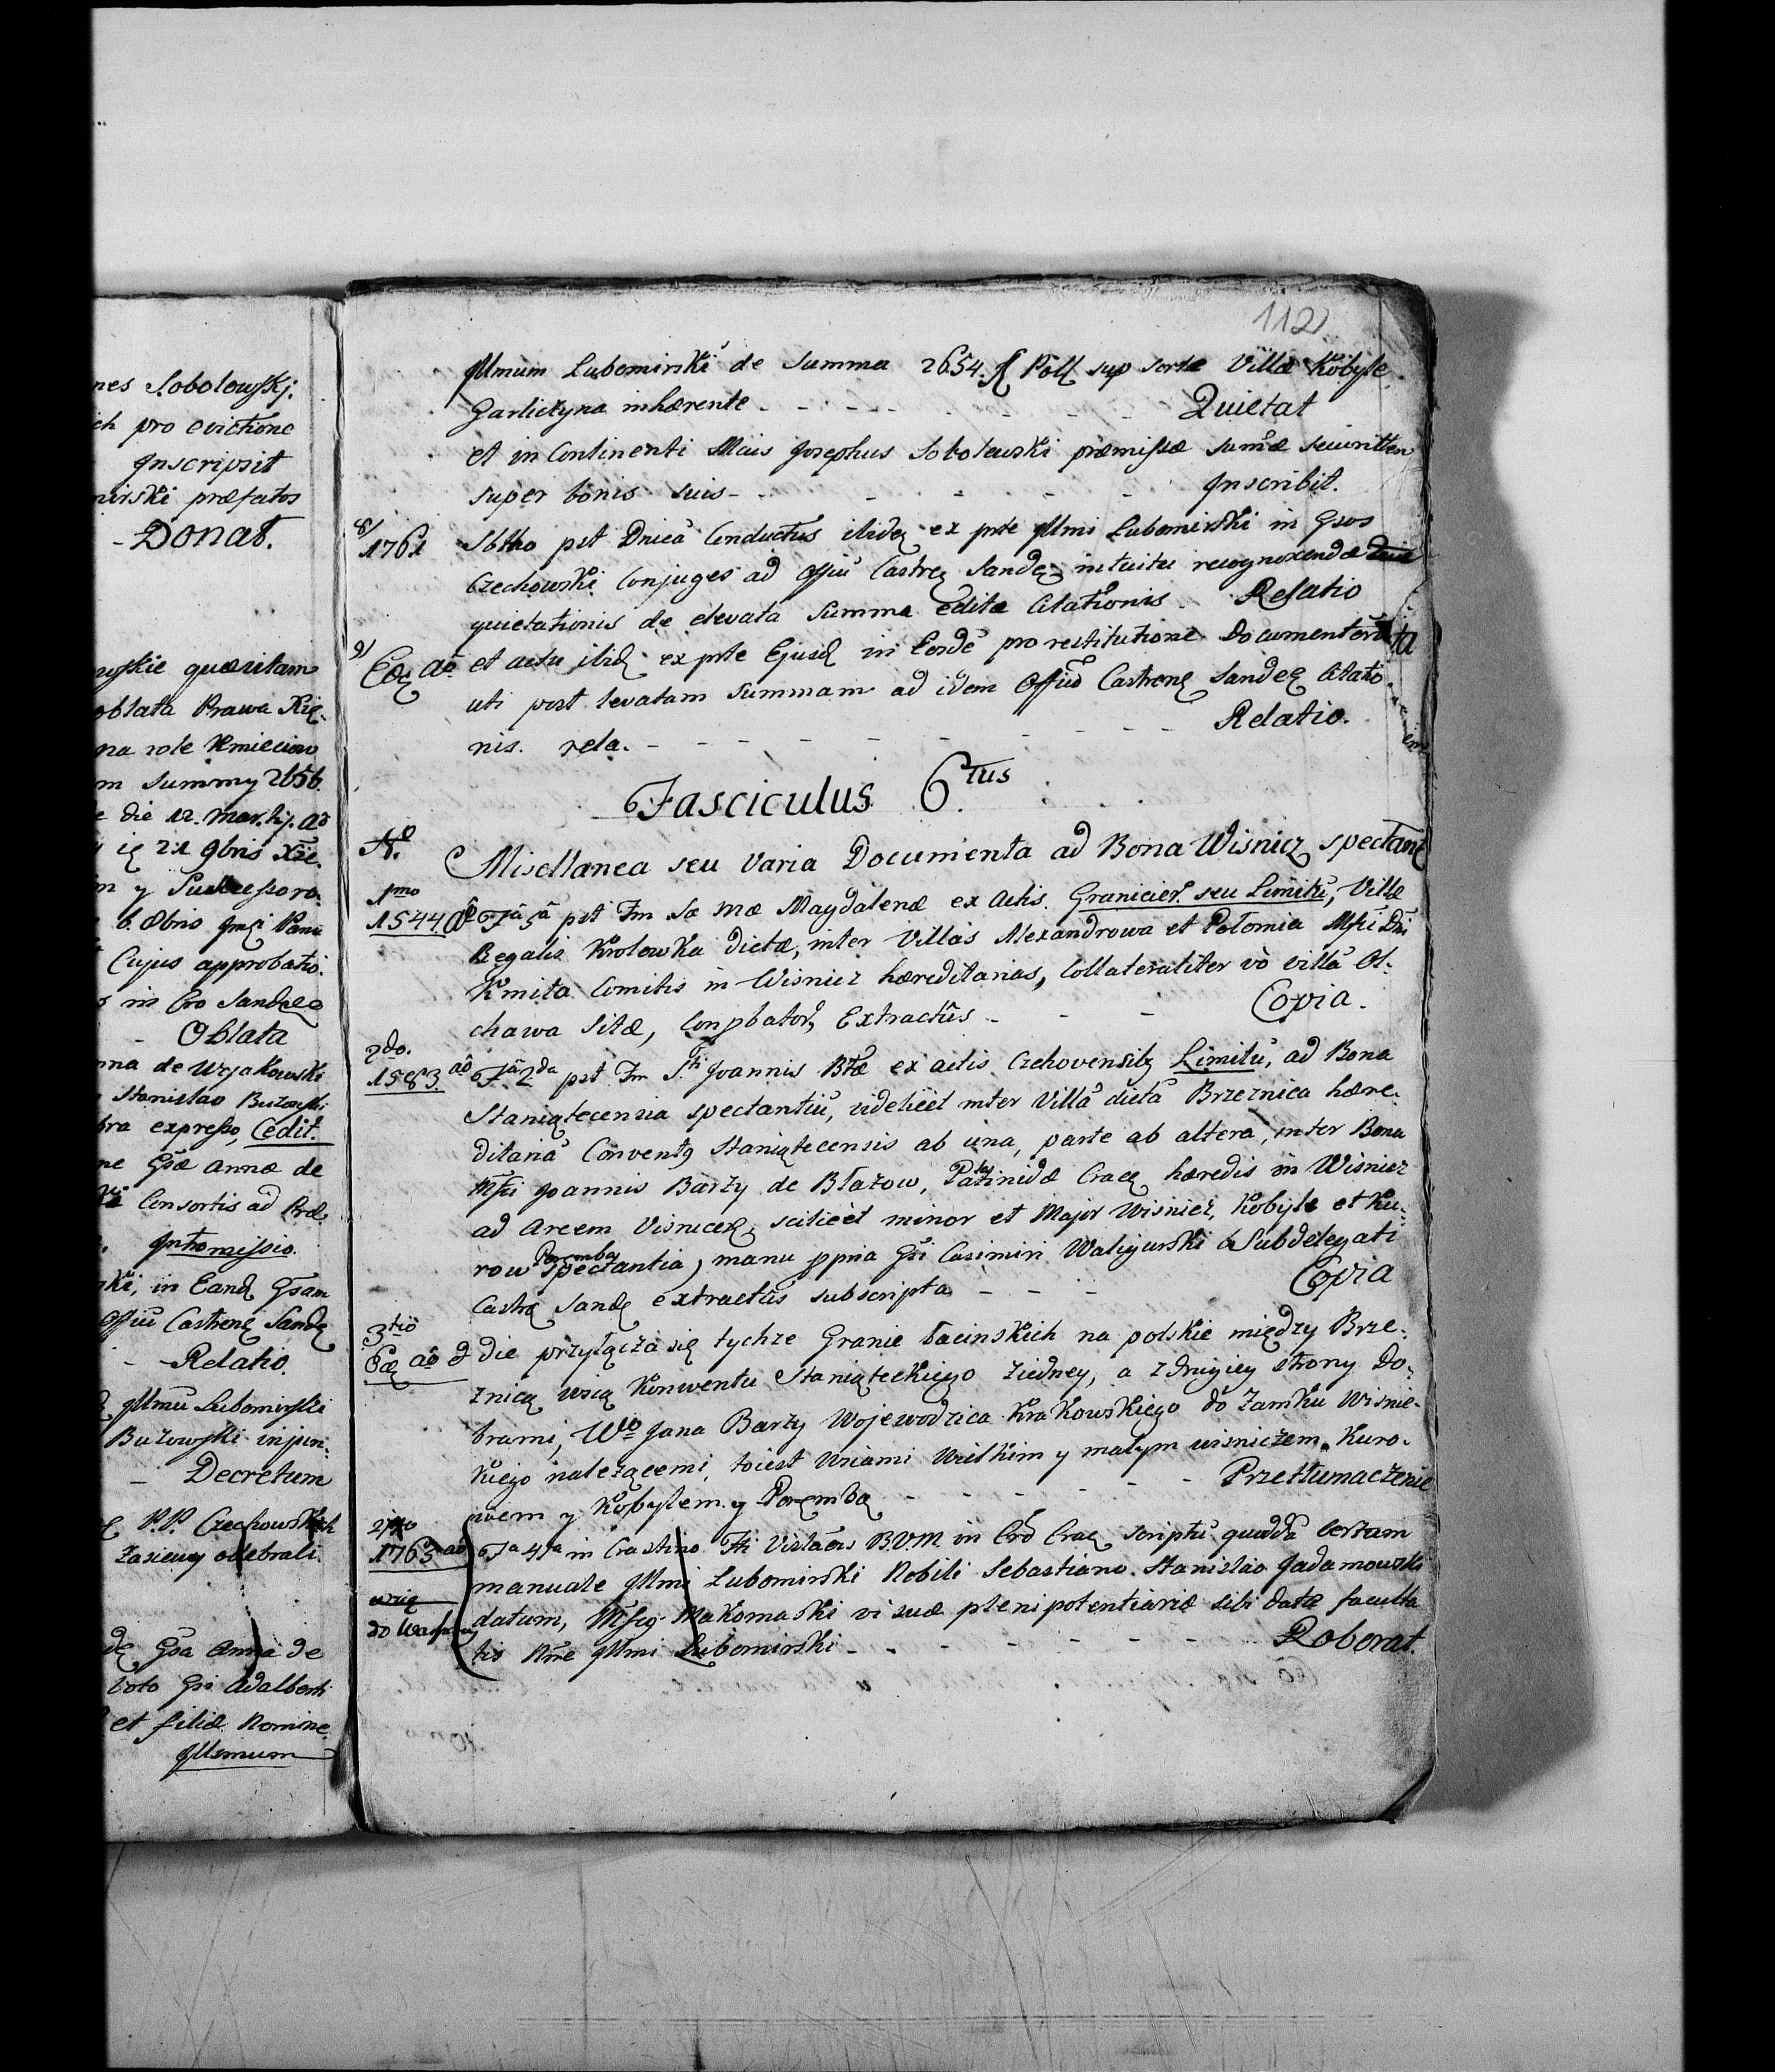 nes Sobolewskj.
ch pro evictione
Jnscripsit
mirski præfatos
- Donat.
wskie quæsitam
oblata Prawa Xię-
na role Kmieciow
m Summy 2656.
e die 12. Martij. Aō
ię 21 9bris Xże.
m y Sukcessoro-
6. 8bris Jmci Pana
Cujus approbatio.
in Cro Sandecē
- Oblata
nna de Wrzakowski
Stanislao Buzowski
bra expresso, Cedit.
ne Gsæ Annæ de
Consortis ad Præ-
Jntromissio.
ski, in Eand Gsam
Offiū Castrenę Sandę
- - Relatio.
Jllmū Lubomirski
Buzowski injun-
- Decretum
P.P. Czechowskich
Zasiewy odebrali.
dę Gsa Anna de
voto Gsi Adalberti
et filiæ Nomine.
Jllmum
112
Jllmum Lubomirski de Summa 2654. fl Poll sup sorte Villæ Kobyle
Garlictyna inhærente - - - Quietat
et in Continenti Mais Josephus Sobolewski præmissæ sumæ securitten
super bonis suis - - - Jnscribit.
8/
1761 Sbtho pst Dnicā Conductus ibidę ex pte Jllmi Lubomirski in Gsos
Czechowski Conjuges ad Offiū Castreę Sandę intuitu recognoscendæ
quietationis de elevata Summa editæ Citationis - Relatio
9/
Eoę aō et actu ibid ex pte Ejusd in Eosdē pro restitutione Documentorū
uti post levatam summam ad idem Offiū Castrenę Sandeę Citatio-
nis. rela. - - - Relatio.
Fasciculus 6.tus
No.
Misellanea seu varia Documenta ad Bona Wisnicz spectant
1mo
1544 aō Fâ 5â pst Fm Sæ Mæ Magdalenæ ex Actis. Granicier. seu Limitū, Villæ
Regalis Krolowka dictæ, inter Villas Alexandrowa et Połomia Mfci Dni
Kmita Comitis in Wisnicz hæreditarias, Collateraliter vò villā Ol-
chawa Sitæ, Conpbator, Extractûs - - - Copia.
2do.
1583 aō Fâ 2da pst Fm S.ti Joannis Btæ ex actis Czchovensibz Limitū, ad Bona
Staniątecensia spectantiū, videlicèt inter Villā dictā Brzeznica hære-
ditariā Conventq Staniątecensis ab una, parte ab altera, inter Bona
Mfci Joannis Barzy de Błazow, Palatinidæ Cracę hæredis in Wisnicz
ad Arcem Visnicenę, scilicèt minor et Major Wisnicz, Kobyle et Ku-
row Poremba spectantia, manu ppria Gsi Casimiri Waligurski Subdelegati
Castrę Sandę extractūs subscripta - - - Copia
3tiò
Eoę aō & die przyłącza się tychze Granic łacinskich na polskie między Brze-
znicą wsią Konwentu Staniąteckiego ziedney, a z drugiey strony Do-
brami, Wgo Jana Barzy Wojewodzica Krakowskiego do Zamku Wisnic-
kiego nalezącemi, toiest Wsiami Wielkim y małym wisniczem. Kuro-
wem y Kobylem. y Porembą - - - Przetłumaczenie
1763 aō Fa 4ta in Crastino Fti Vistāeis B.V.M in Crō Cracę scriptū quoddā certam
manuale Jllmi Lubomirski Nobili Sebastiano. Stanislao Jadamowski
do Warszawy
datum, Mfcg Makomaski vi suæ plenipotentiariæ sibi datæ faculta
tis Nne Jllmi Lubomirski - - - Roborat.